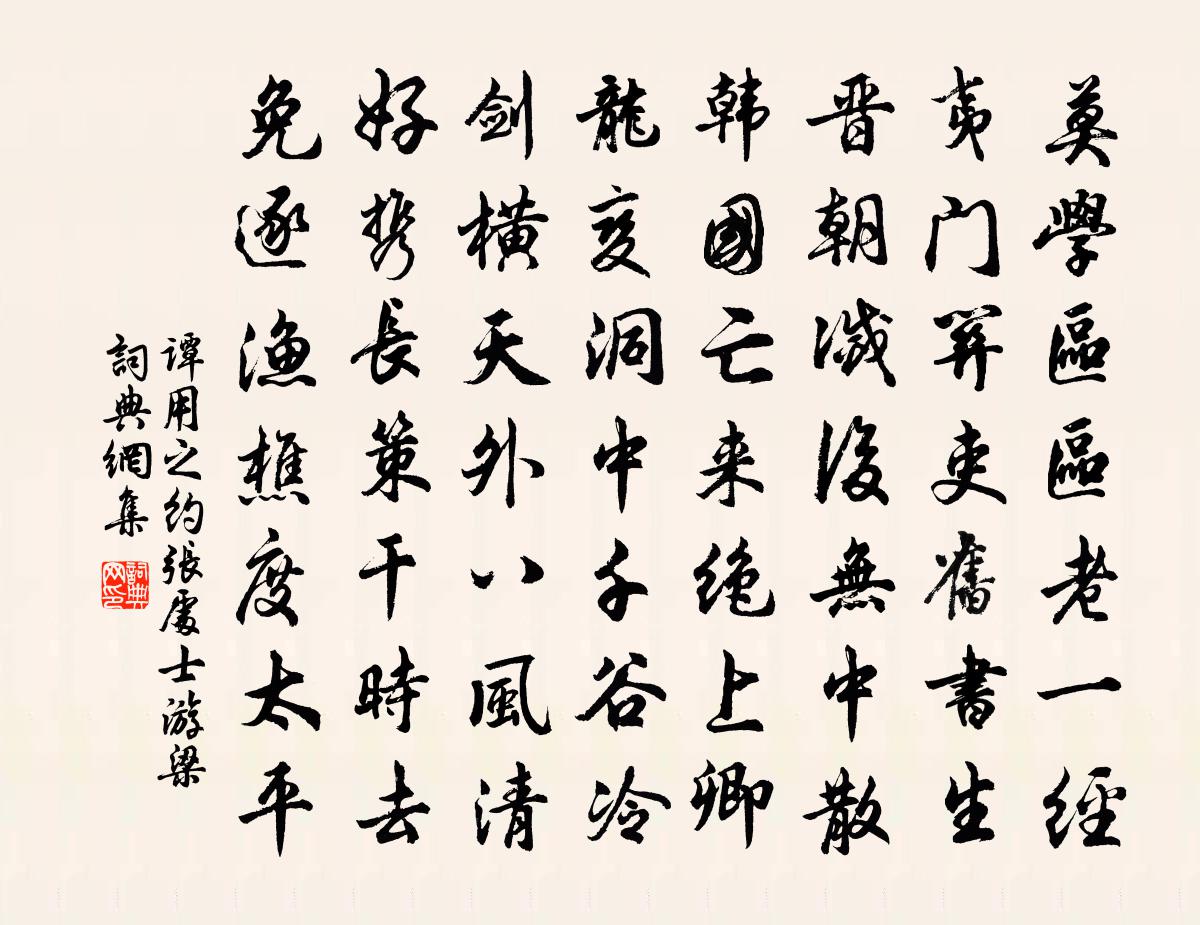 莫學區區老一經
夷門關吏舊書生
晋朝滅後無中散
韩國亡来绝上卿
龍变洞中千谷冷
剑横天外八風清
好携長策干時去
免逐漁樵度太平
谭用之约張處士游梁
詞典網集
詞典网印